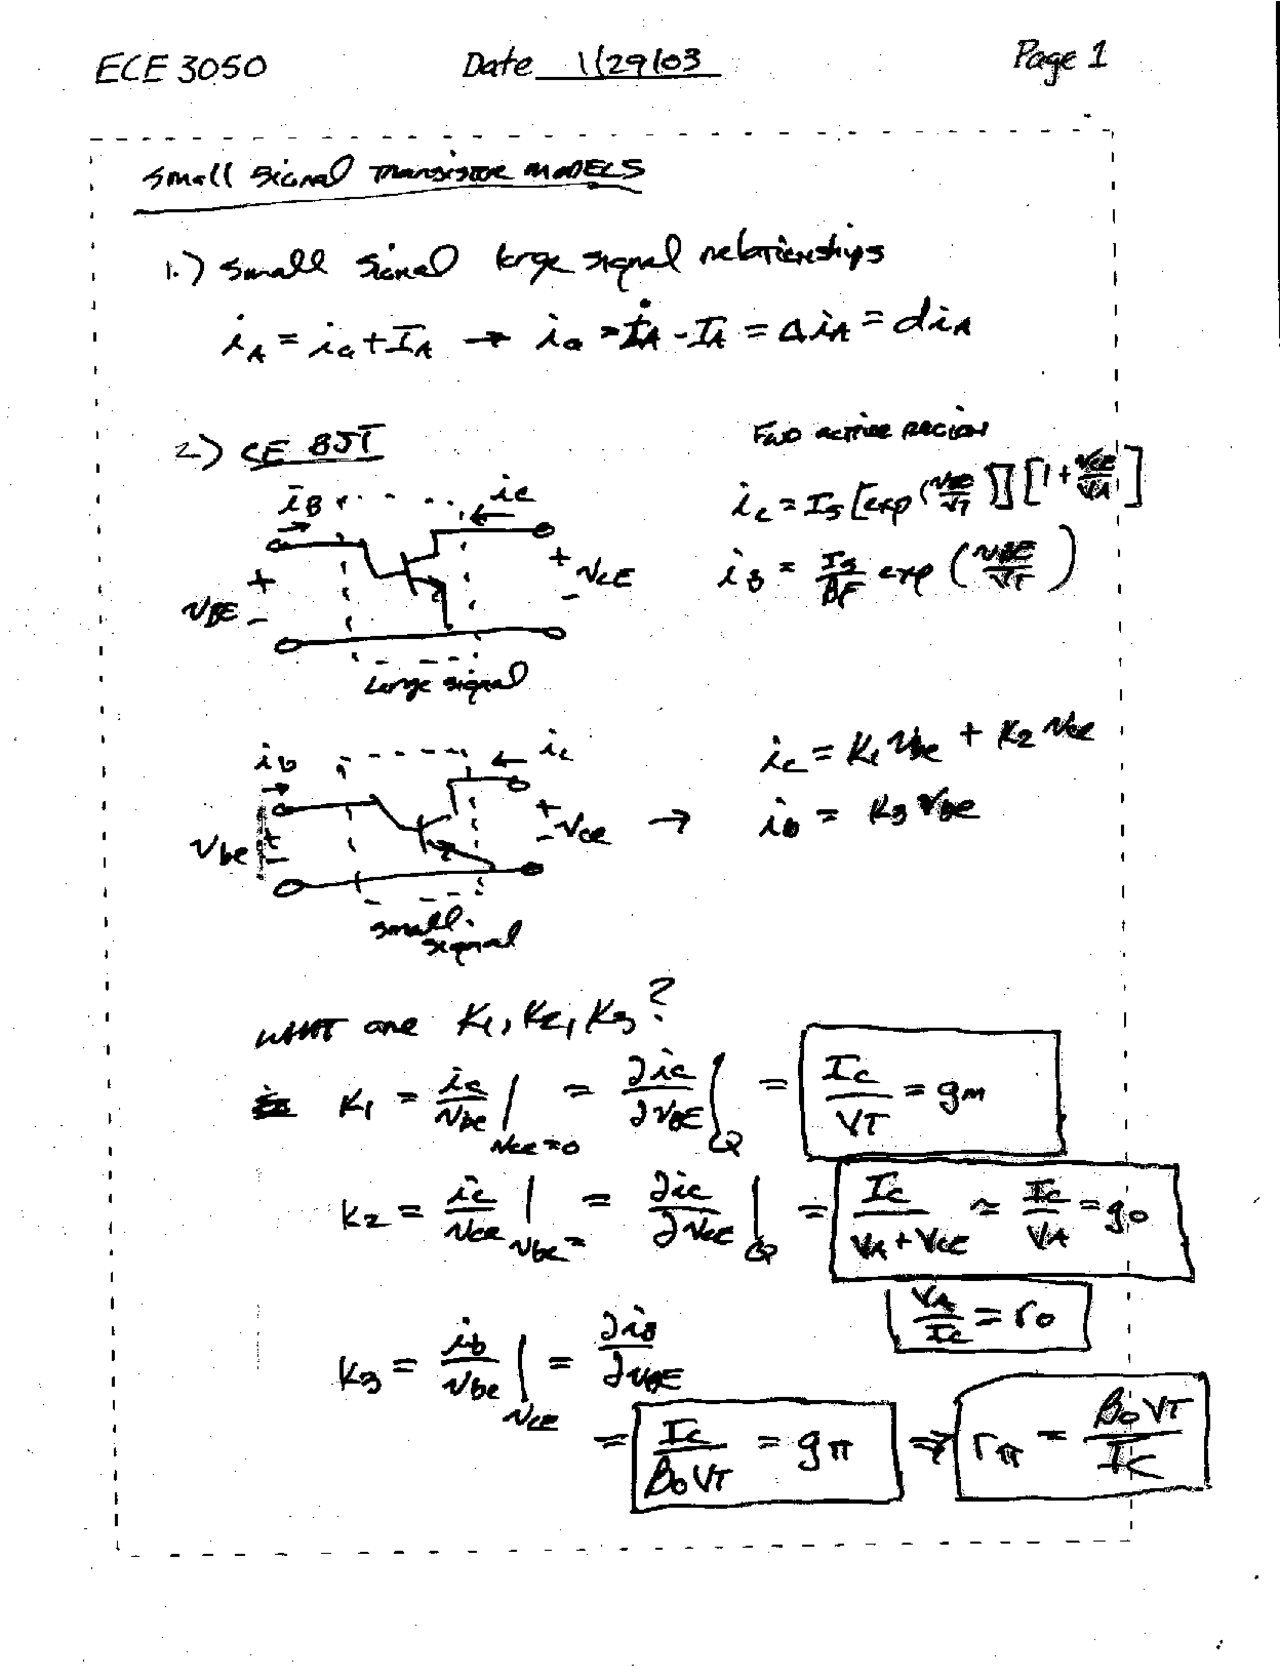 ECE 3050 Date 1/29/03 Page 1
Small Signal Transistor MODELS
1.) Small Signal large signal relationships
i_A = i_a + I_A → i_a = i_A - I_A = Δi_A = di_A
2.) CE BJT
FWD active REGION
i_B i_C
i_C = I_S [exp(v_BE/V_T)][1 + v_CE/V_A]
+ v_BE - + v_CE -
i_B = I_S/β_F exp(v_BE/V_T)
Large signal
i_b i_c
i_c = K_1 v_be + K_2 v_ce
v_be + - + - v_ce →
i_b = K_3 v_be
small signal
WHAT are K_1, K_2, K_3?
K_1 = i_c/v_be |v_ce=0 = ∂i_C/∂v_BE |Q = I_C/V_T = g_m
K_2 = i_c/v_ce |v_be= = ∂i_C/∂v_CE |Q = I_C/(V_A + V_CE) ≃ I_C/V_A = g_o
V_A/I_C = r_o
K_3 = i_b/v_be |v_CE = ∂i_B/∂v_BE
= I_C/(β_o V_T) = g_π ⇒ r_π = β_o V_T/I_C